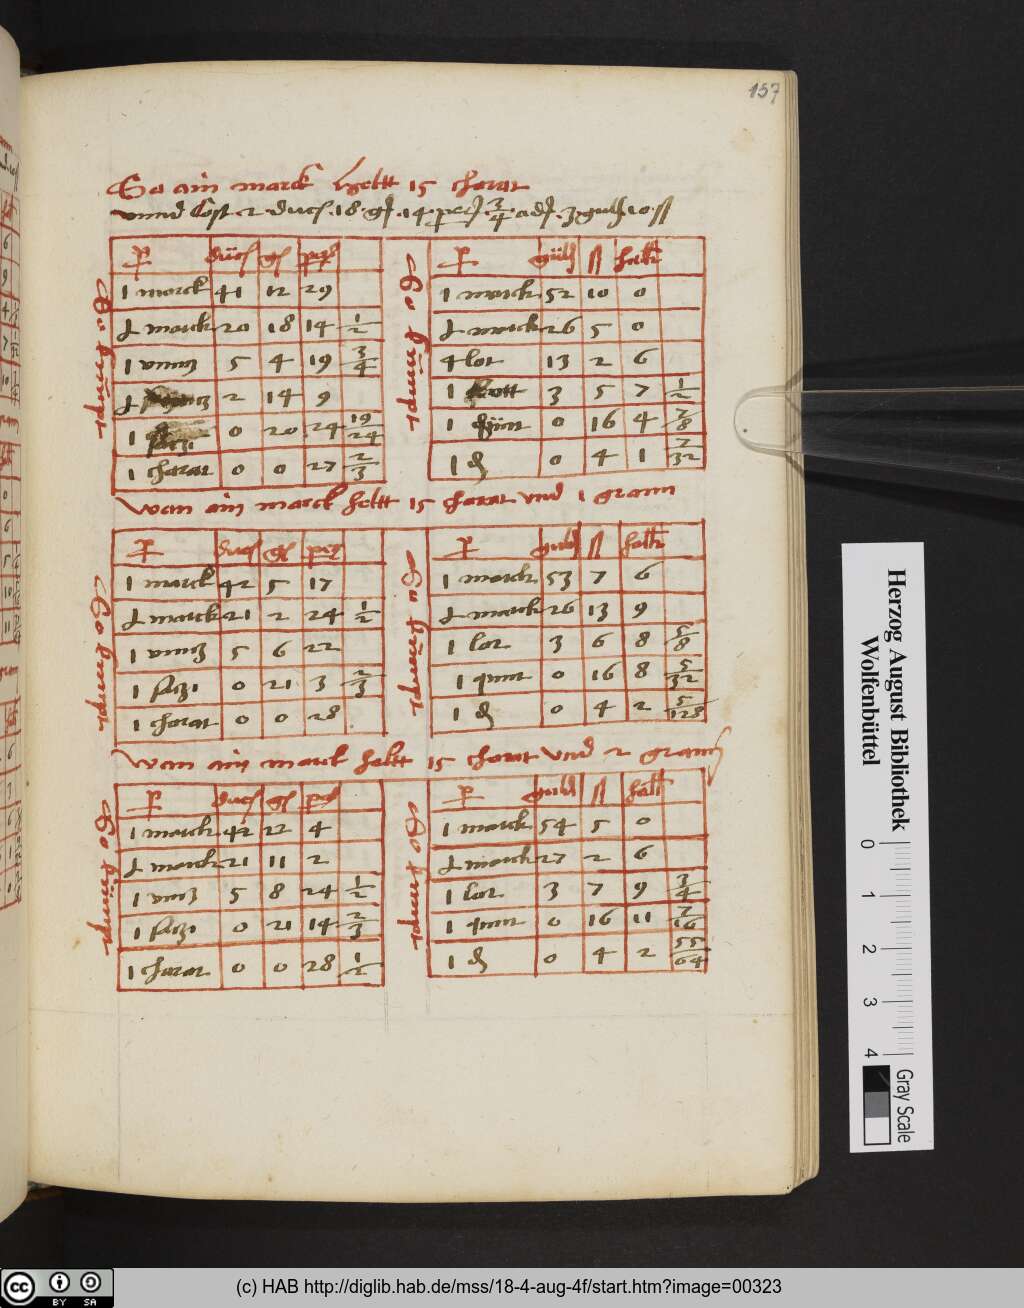 157
So ain marck heltt 15 charat
vnnd cost 2 duc 18 gl 14 3/4 3 guld 10 ß
So kumpt
duc gl
1 marck 41 12 29
marck 20 18 14 1/2
1 vnnz 5 4 19 3/4
2 14 9
1 0 20 24 19/24
1 charat 0 0 27 2/3
So kumpt
guld ß hallr
1 marck 52 10 0
marck 26 5 0
4 lot 13 2 6
1 lott 3 5 7 1/2
1 quint 0 16 4 7/8
1 ₰ 0 4 1 7/32
wan ain marck heltt 15 charat vnd 1 grann
So kumpt
duc gl
1 marck 42 5 17
marck 21 2 24 1/2
1 vnnz 5 6 22
1 0 21 3 2/3
1 charat 0 0 28
So kumpt
guld ß hallr
1 marck 53 7 6
marck 26 13 9
1 lot 3 6 8 5/8
1 quint 0 16 8 5/32
1 ₰ 0 4 2 5/128
wan ain marck heltt 15 charat vnd 2 grann
So kumpt
duc gl
1 marck 42 22 4
marck 21 11 2
1 vnnz 5 8 24 1/2
1 0 21 14 2/3
1 charat 0 0 28 1/2
So kumpt
guld ß hallr
1 marck 54 5 0
marck 27 2 6
1 lot 3 7 9 3/4
1 quint 0 16 11 7/16
1 ₰ 0 4 2 55/64
Herzog August Bibliothek
Wolfenbüttel
0 1 2 3 4
Gray Scale
cc BY SA
(c) HAB http://diglib.hab.de/mss/18-4-aug-4f/start.htm?image=00323